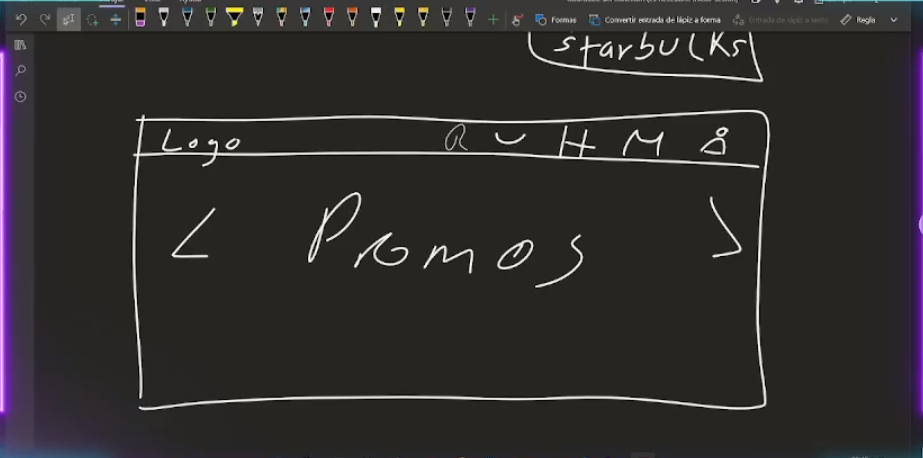 Formas
Convertir entrada de lápiz a forma
Entrada de lápiz a texto
Regla
starbucks
Logo
H M
< Promos >